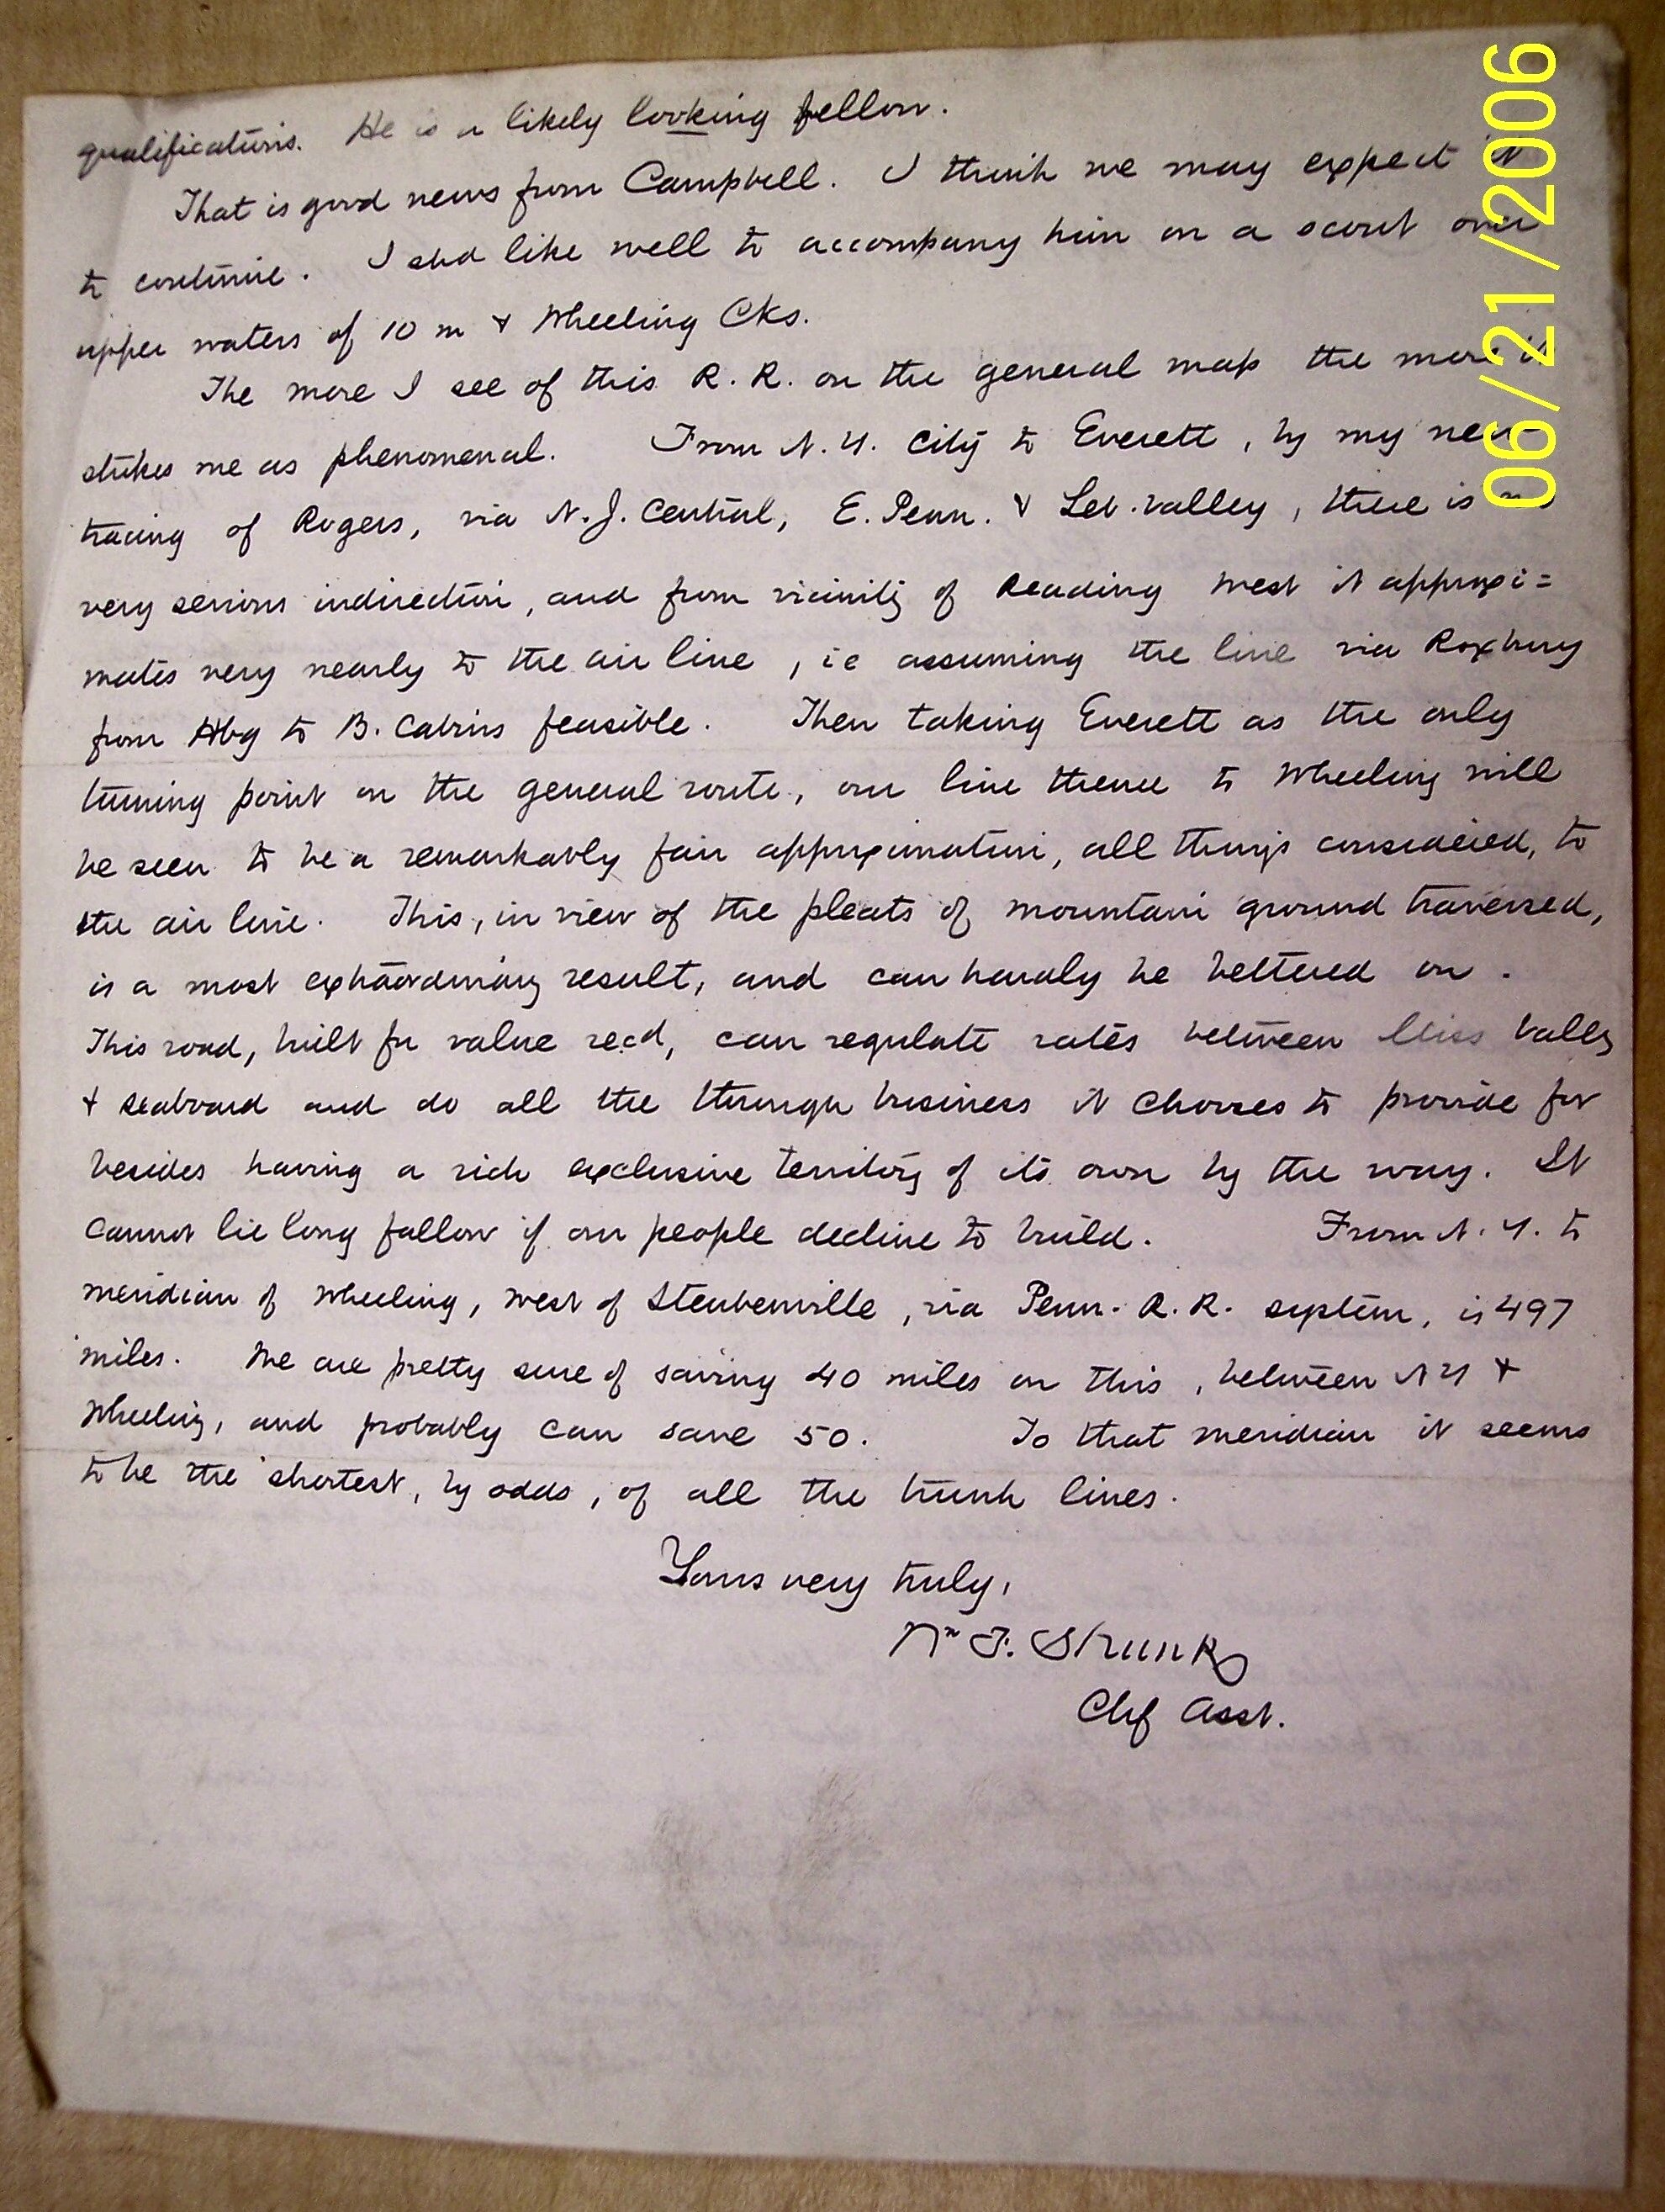 qualifications. He is a likely looking fellow.
That is good news from Campbell. I think we may expect it
to continue. I shd like well to accompany him on a scout over
upper waters of 10 m & Wheeling Cks.
The more I see of this R. R. on the general map the more it
strikes me as phenomenal. From N. Y. City to Everett, by my new
tracing of Rogers, via N. J. Central, E. Penn. & Leb. Valley, there is no
very serious indirection, and from vicinity of Reading west it approxi=
mates very nearly to the air line, ie assuming the line via Roxbury
from Hbg to B. Cabins feasible. Then taking Everett as the only
turning point on the general route, our line thence to Wheeling will
be seen to be a remarkably fair approximation, all things considered, to
the air line. This, in view of the pleats of mountain ground traversed,
is a most extraordinary result, and can hardly be bettered on.
This road, built for value recd, can regulate rates between Miss Valley
& seaboard and do all the through business it chooses to provide for
besides having a rich exclusive territory of its own by the way. It
cannot lie long fallow if our people decline to build. From N. Y. to
meridian of Wheeling, west of Steubenville, via Penn. R. R. system, is 497
miles. We are pretty sure of saving 40 miles on this, between N Y &
Wheeling, and probably can save 50. To that meridian it seems
to be the shortest, by odds, of all the trunk lines.
Yours very truly,
Wm F. Shunk
Chf Asst.
06/21/2006